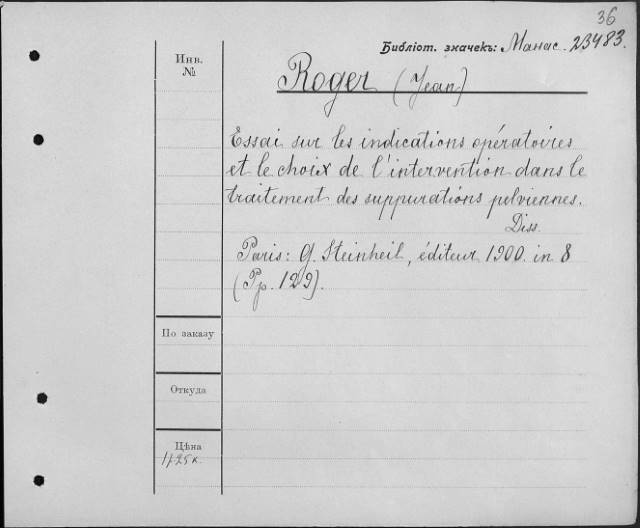 36
Библіот. значекъ: Манас. 23483.
Инв.
№
Roger (Jean)
Essai sur les indications opératoires
et le choix de l'intervention dans le
traitement des suppurations pelviennes.
Diss.
Paris: G. Steinheil, éditeur 1900. in 8
(Pp. 129).
По заказу
Откуда
Цѣна